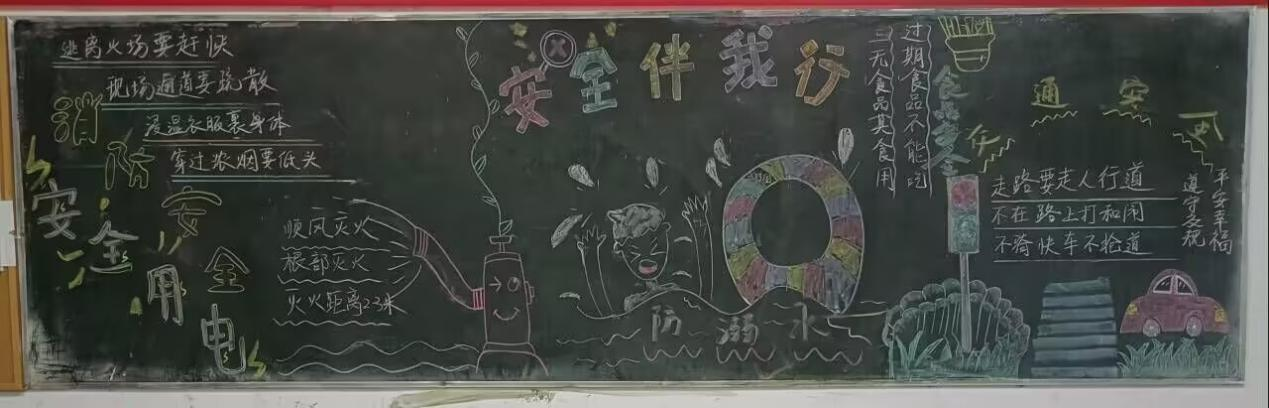 逃离火场要赶快
现场通道要疏散
浸湿衣服裹身体
穿过浓烟要低头
消防安全
安全用电
顺风灭火
根部灭火
火火距离2-3米
安全伴我行
防溺水
过期食品不能吃
三无食品莫食用
食品安全
交通安全
走路要走人行道
不在路上打和闹
不骑快车不抢道
遵守交规
平安幸福